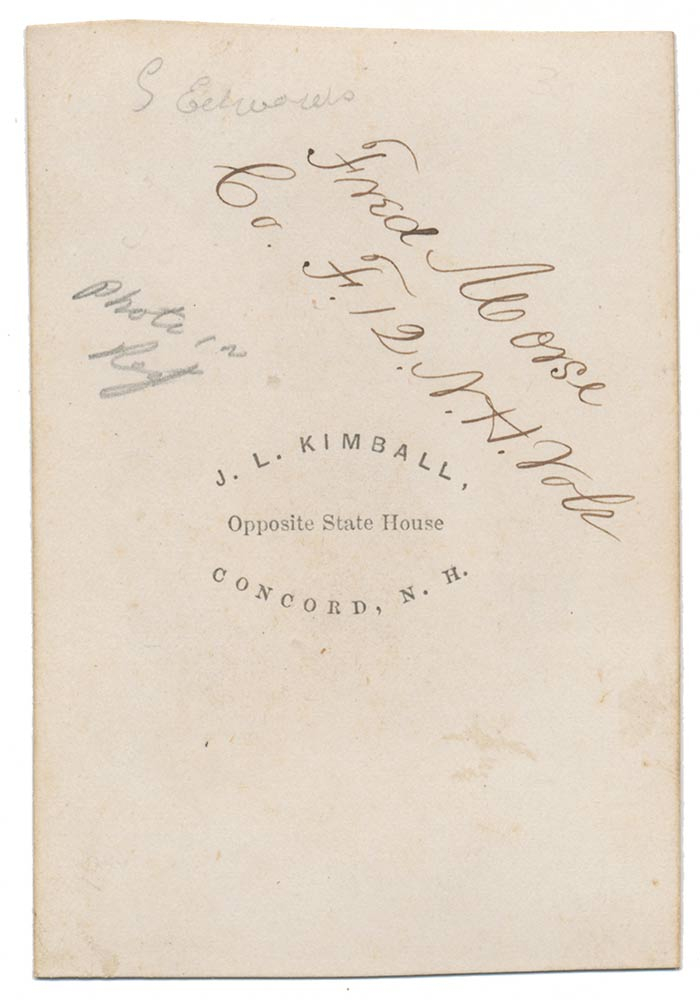 S Edwards
3
Fred Morse
Co. F. 12. N. H. Vols
Photo in
Reg
J. L. KIMBALL,
Opposite State House
CONCORD, N. H.